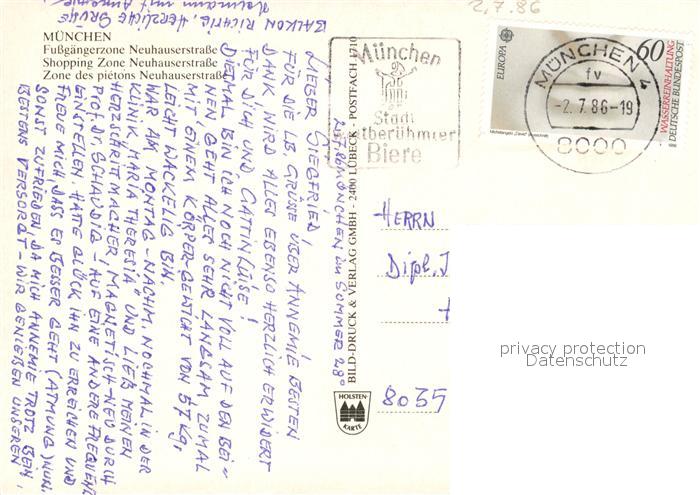 2.7.86
MÜNCHEN
Fußgängerzone Neuhauserstraße
Shopping Zone Neuhauserstraße
Zone des piétons Neuhauserstraße
München
Stadt
weltberühmter
Biere
EUROPA
60
WASSERREINHALTUNG
DEUTSCHE BUNDESPOST
MÜNCHEN
fv
-2.7.86-19
8000
BILD-DRUCK & VERLAG GMBH - 2400 LÜBECK - POSTFACH 1710
HOLSTEN-
KARTE
MÜNCHEN IM SOMMER 28°
LIEBER SIEGFRIED,
FÜR DIE LB. GRÜSSE ÜBER ANNEMIE BEITEN
DANK WIRD ALLES EBENSO HERZLICH ERWIDERT
FÜR DICH UND GATTIN LUISE!
DIETMAL BIN ICH NOCH NICHT VOLL AUF DEN BEI-
NEN GEHT ALLES SEHR LANGSAM, ZUMAL
MIT EINEM KÖRPER-GEWICHT VON 57 KG,
LEICHT WACKELIG BIN.
WAR AM MONTAG-NACHM. NOCHMAL IN DER
KLINIK "MARIA THERESIA" UND LIEß MEINEN
HERZSCHRITTMACHER, MAGNETISCH-NEU DURCH
PROF. DR. SCHAUDIG - AUF EINE ANDERE FREQUENZ
EINSTELLEN. HATTE GLÜCK IHN ZU ERREICHEN UND
FREUE MICH, DASS ES BESSER GEHT (ATMUNG) NUN.
SONST ZUFRIEDEN, DA MICH ANNEMIE TROTZ BEIN
BESTENS VERSORGT - WIR GENIEßEN UNSEREN
BALKON RICHTIG. HERZLICHE GRÜSSE
HERRN
Dipl. I
8035
privacy protection
Datenschutz